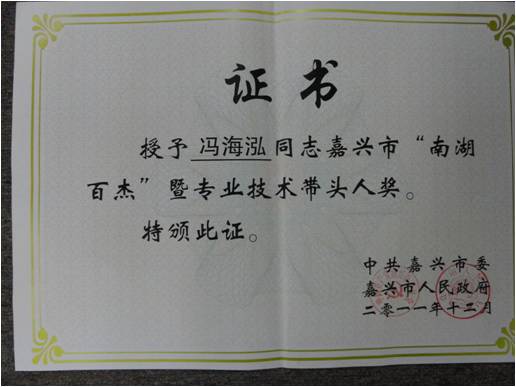 证书
授予 冯海泓 同志嘉兴市“南湖
百杰”暨专业技术带头人奖。
特颁此证。
中共嘉兴市委
嘉兴市人民政府
二零一一年十二月